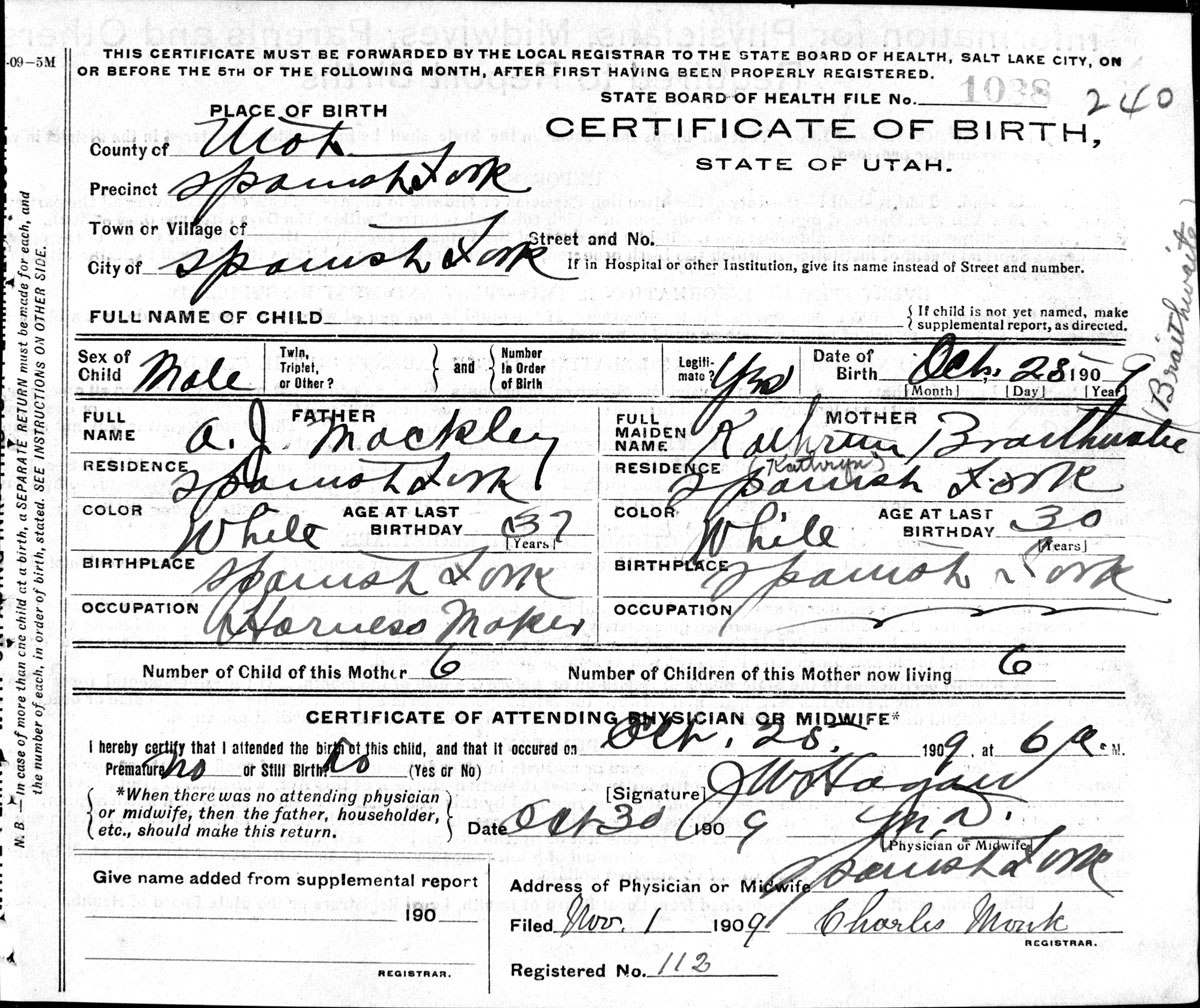 -09-5M
THIS CERTIFICATE MUST BE FORWARDED BY THE LOCAL REGISTRAR TO THE STATE BOARD OF HEALTH, SALT LAKE CITY, ON
OR BEFORE THE 5TH OF THE FOLLOWING MONTH, AFTER FIRST HAVING BEEN PROPERLY REGISTERED.
STATE BOARD OF HEALTH FILE No. 1038 240
PLACE OF BIRTH
CERTIFICATE OF BIRTH,
STATE OF UTAH.
County of Utah
Precinct Spanish Fork
Town or Village of
Street and No.
City of Spanish Fork
If in Hospital or other Institution, give its name instead of Street and number.
FULL NAME OF CHILD
{ If child is not yet named, make
supplemental report, as directed.
Sex of Child Male
Twin, Triplet, or Other? } and { Number in Order of Birth
Legiti-mate? Yes
Date of Birth Oct. 28 1909
[Month] [Day] [Year]
(Braithwaite)
FATHER
FULL NAME A. J. Mackley
MOTHER
FULL MAIDEN NAME Kathrun Braithwaite
(Kathryn)
RESIDENCE Spanish Fork
RESIDENCE Spanish Fork
COLOR White AGE AT LAST BIRTHDAY 37 [Years]
COLOR White AGE AT LAST BIRTHDAY 30 [Years]
BIRTHPLACE Spanish Fork
BIRTHPLACE Spanish Fork
OCCUPATION Harness Maker
OCCUPATION
Number of Child of this Mother 6
Number of Children of this Mother now living 6
CERTIFICATE OF ATTENDING PHYSICIAN OR MIDWIFE*
I hereby certify that I attended the birth of this child, and that it occured on Oct. 28. 1909, at 6 A. M.
Premature No or Still Birth? No (Yes or No)
{ *When there was no attending physician
or midwife, then the father, householder,
etc., should make this return. }
[Signature] J W Hagan
Date Oct 30 1909 M.D.
[Physician or Midwife]
Give name added from supplemental report
190
REGISTRAR.
Address of Physician or Midwife Spanish Fork
Filed Nov. 1 1909 Charles Monk
REGISTRAR.
Registered No. 112
N. B.—In case of more than one child at a birth, a SEPARATE RETURN must be made for each, and
the number of each, in order of birth, stated. SEE INSTRUCTIONS ON OTHER SIDE.